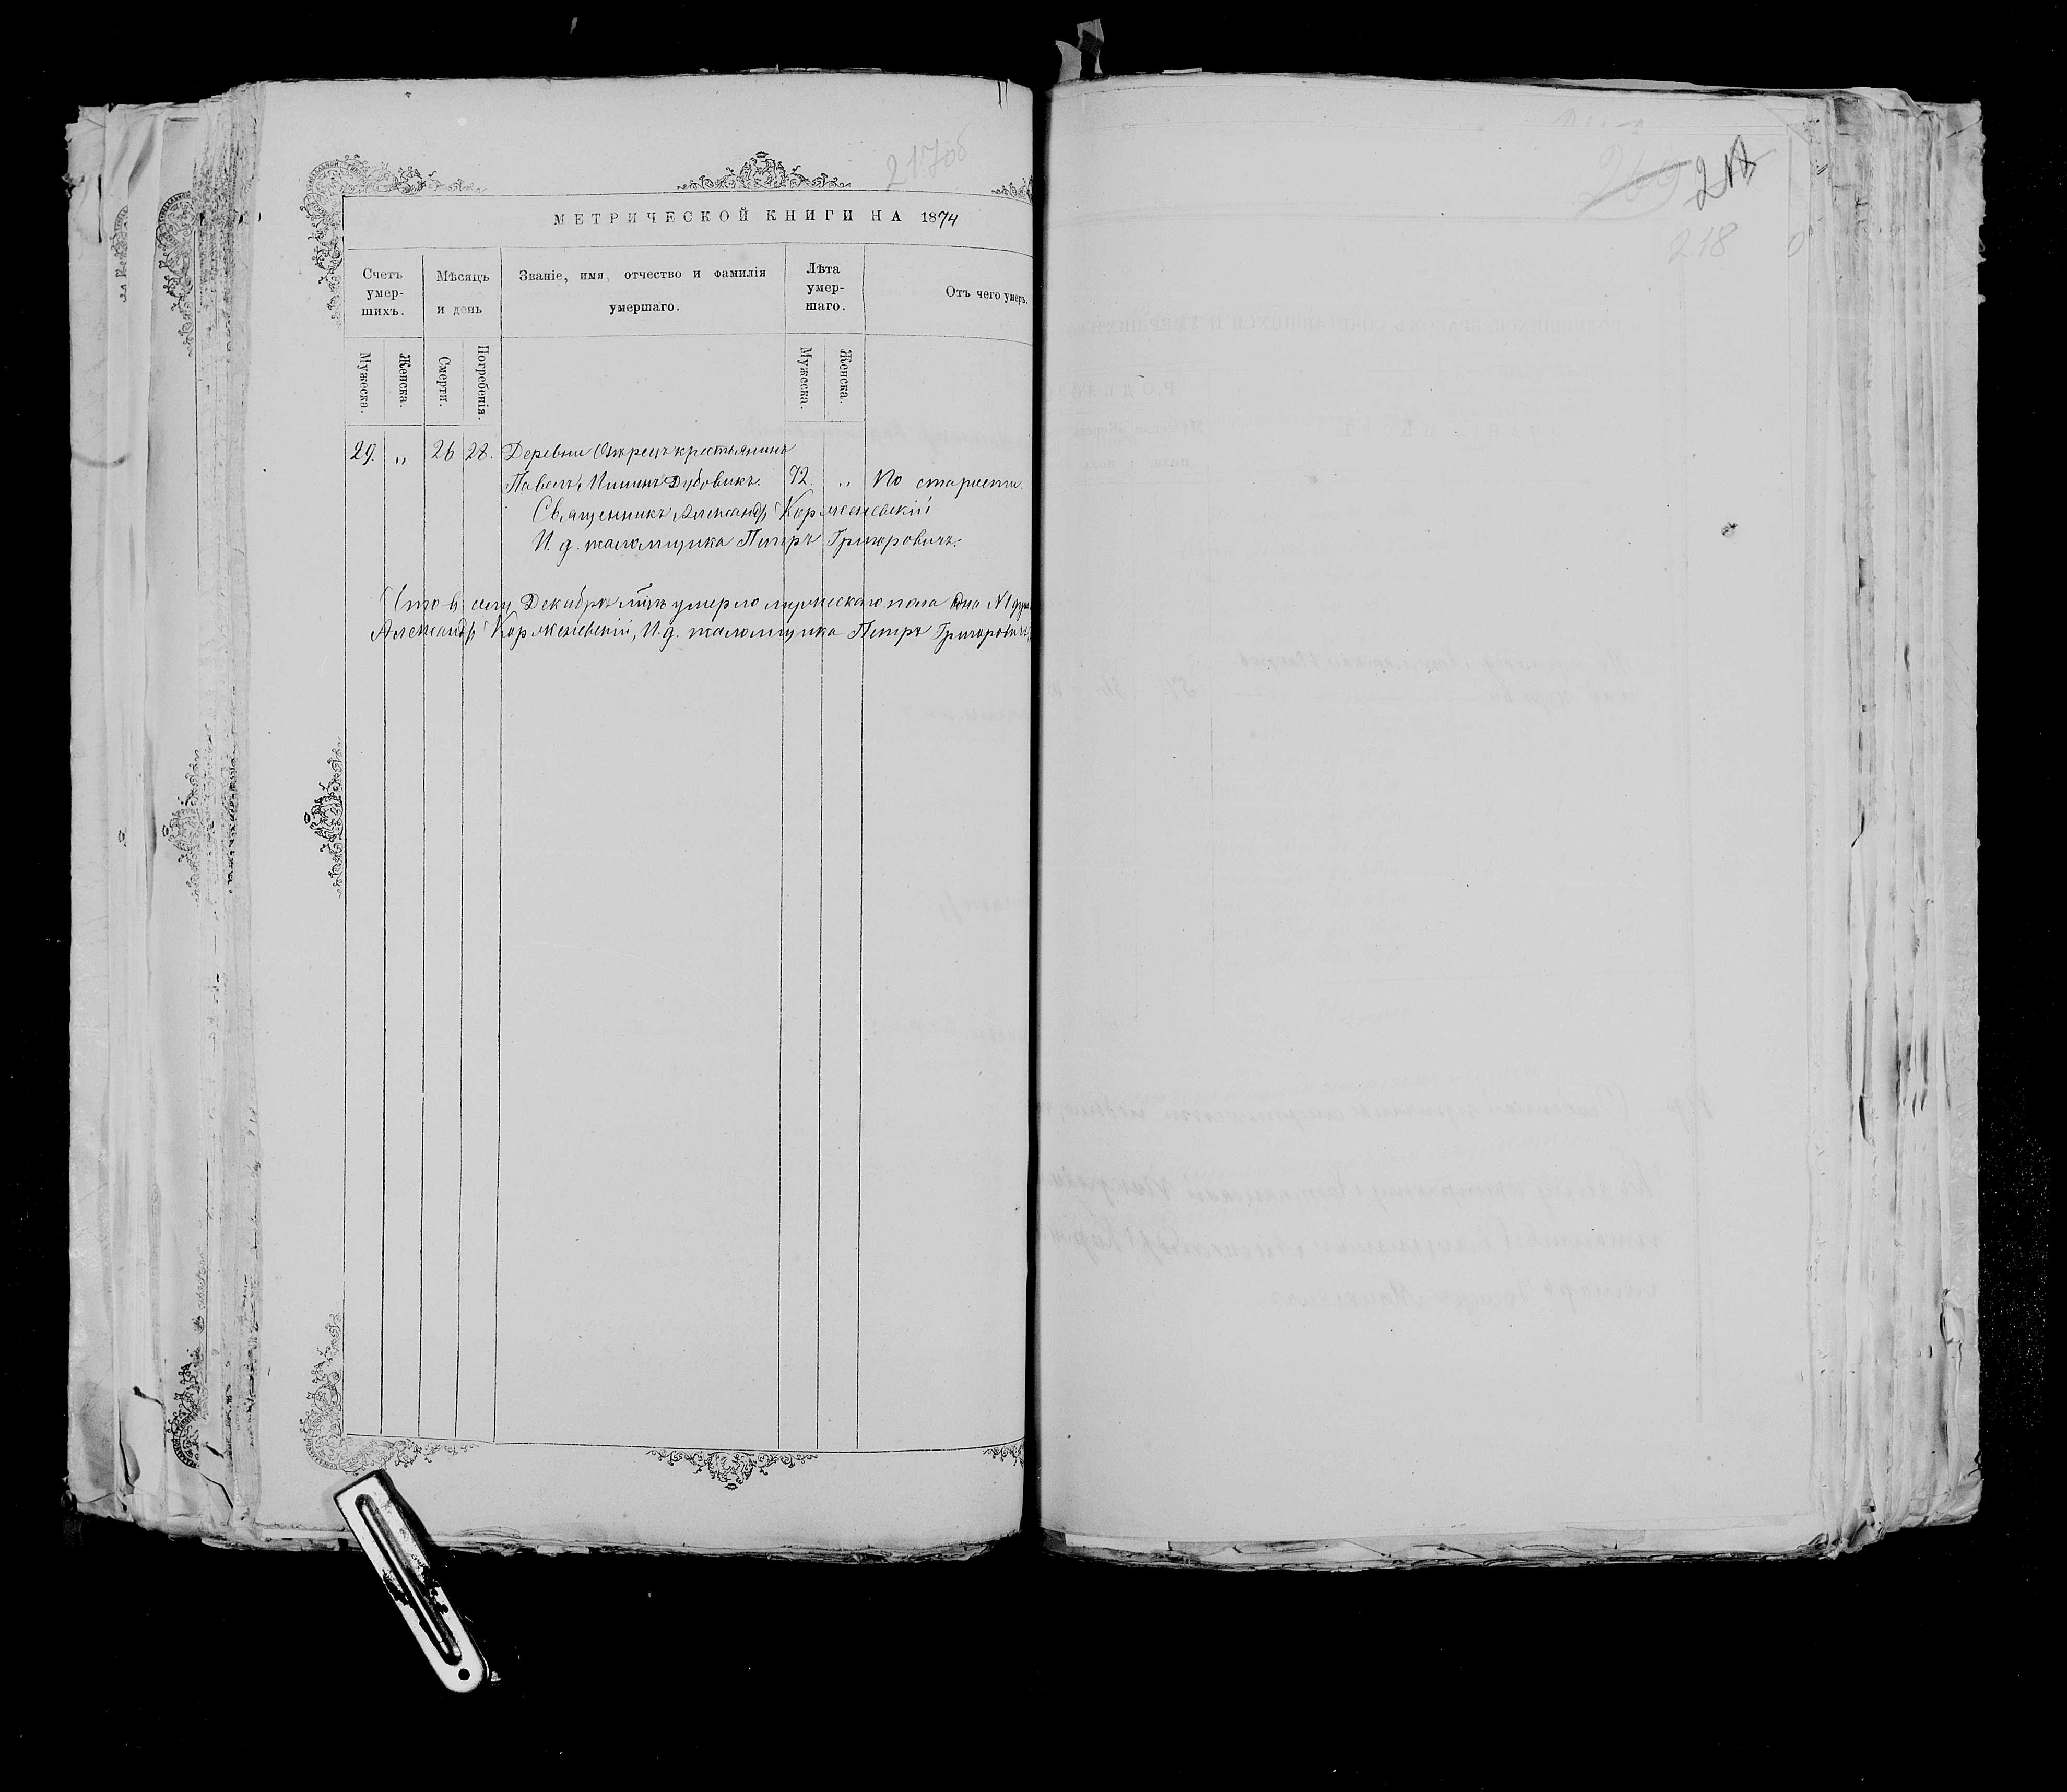 217об
МЕТРИЧЕСКОЙ КНИГИ НА 1874
Счетъ умер-шихъ.
Мѣсяцъ и день
Званіе, имя, отчество и фамилія умершаго.
Лѣта умер-шаго.
Отъ чего умеръ.
Мужеска.
Женска.
Смерти.
Погребенія.
Мужеска.
Женска.
29. „ 26 28. Деревни крестьянинъ
Павелъ Мининъ Дубовикъ. 92. „ По старости.
Священникъ Александръ Корженевскій
И. д. псаломщика Петръ Григоровичъ.
Что въ семъ Декабрѣ м-цѣ умерло мужескаго пола одна №1 душа
Александръ Корженевскій, И. д. псаломщика Петръ Григоровичъ
269
218